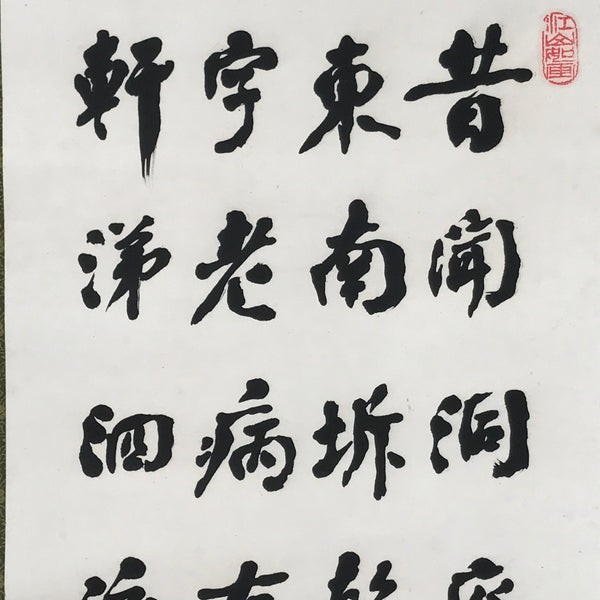 昔聞洞庭
東南坼乾
字老病有
軒涕泗流